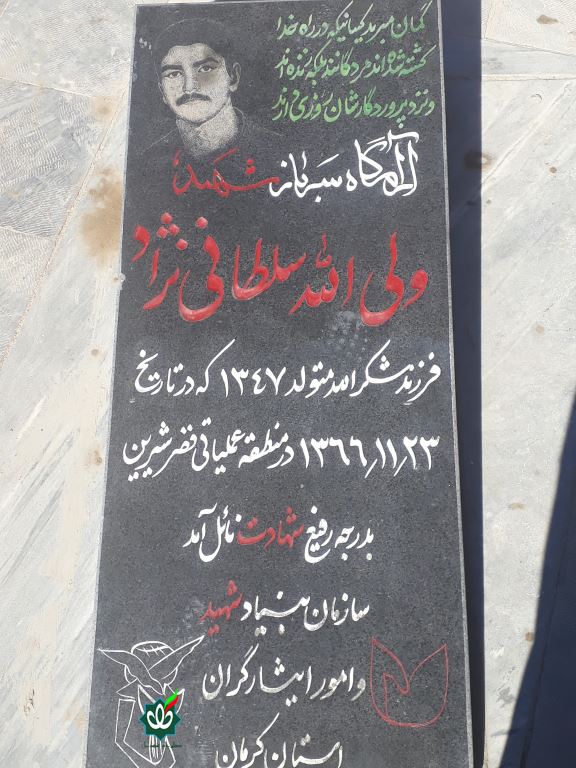 گمان مبرید کسانیکه در راه خدا
کشته شده اند مردگانند بلکه زنده اند
و نزد پروردگارشان روزی دارند
آرامگاه سرباز شهید
ولی الله سلطانی نژاد
فرزند شکرالله متولد ۱۳۴۷ که در تاریخ
۱۳۶۶/۱۱/۲۳ در منطقه عملیاتی قصر شیرین
بدرجه رفیع شهادت نائل آمد
سازمان بنیاد شهید
و امور ایثارگران
استان کرمان